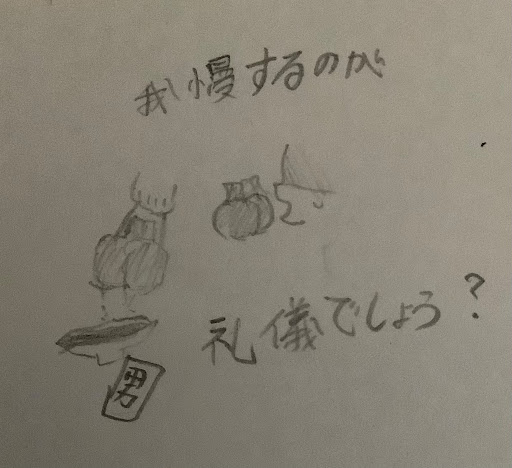 我慢するのが
礼儀でしょう?
男